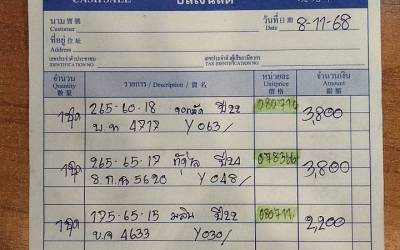 CASH SALE บิลเงินสด
นาม 寶號 Customer วันที่ 日期 Date 8-11-68
ที่อยู่ 住址 Address
เลขประจำตัวประชาชน IDENTIFICATION NO. เลขประจำตัวผู้เสียภาษีอากร TAX IDENTIFICATION NO.
จำนวน Quantity 數量 รายการ / Description / 貨名 หน่วยละ Unitprice 價格 จำนวนเงิน Amount 銀額
1ชุด 265-60-18 ปี22 080716 3,800
4717 Y063/
1ชุด 265-65-17 ปี24 078366 3,800
5620 Y048/
1ชุด 175-65-15 ปี22 080711 2,200
4633 Y030/